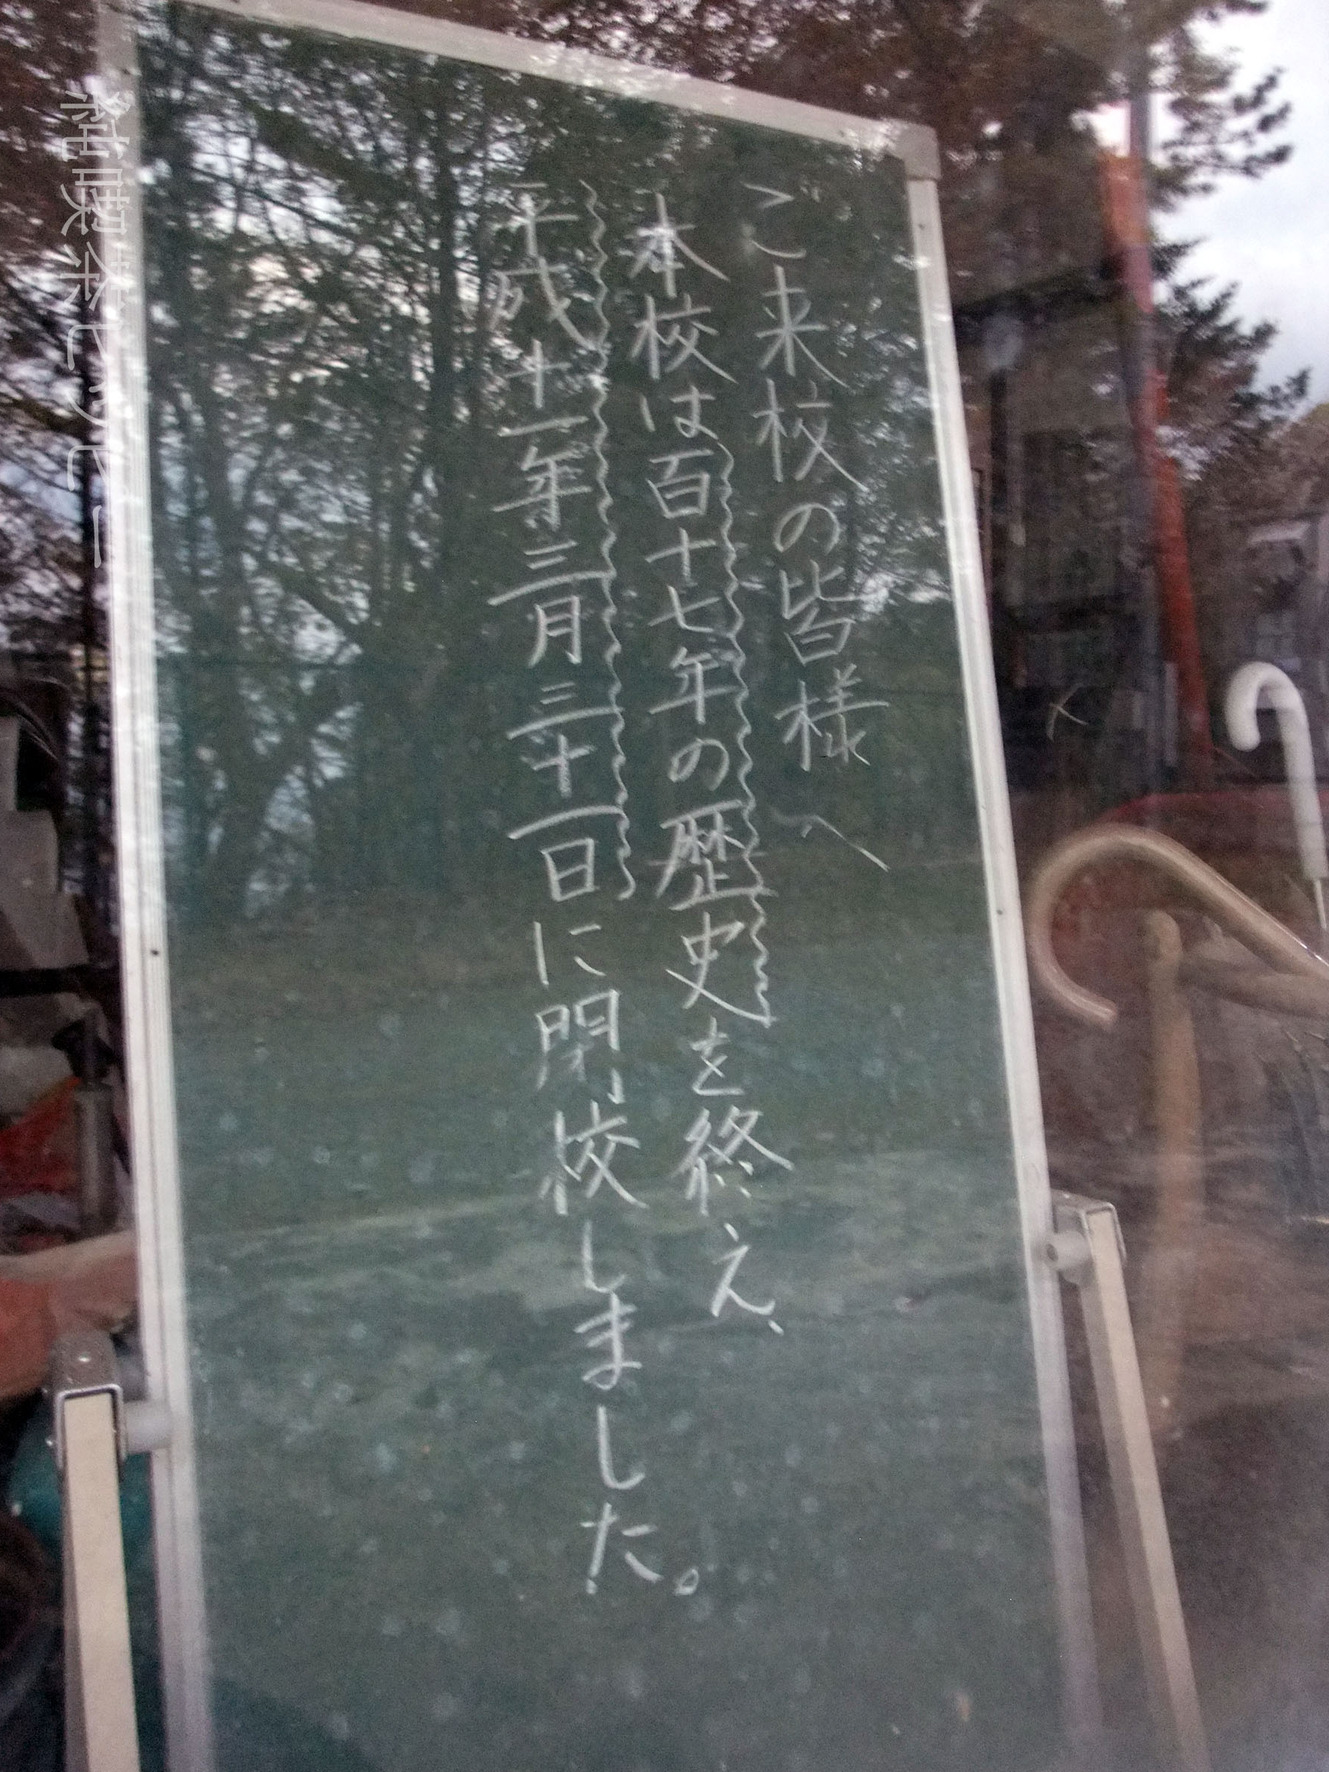 ご来校の皆様へ
本校は百十七年の歴史を終え、
平成十一年三月三十一日に閉校しました。
純喫茶ヒッピー